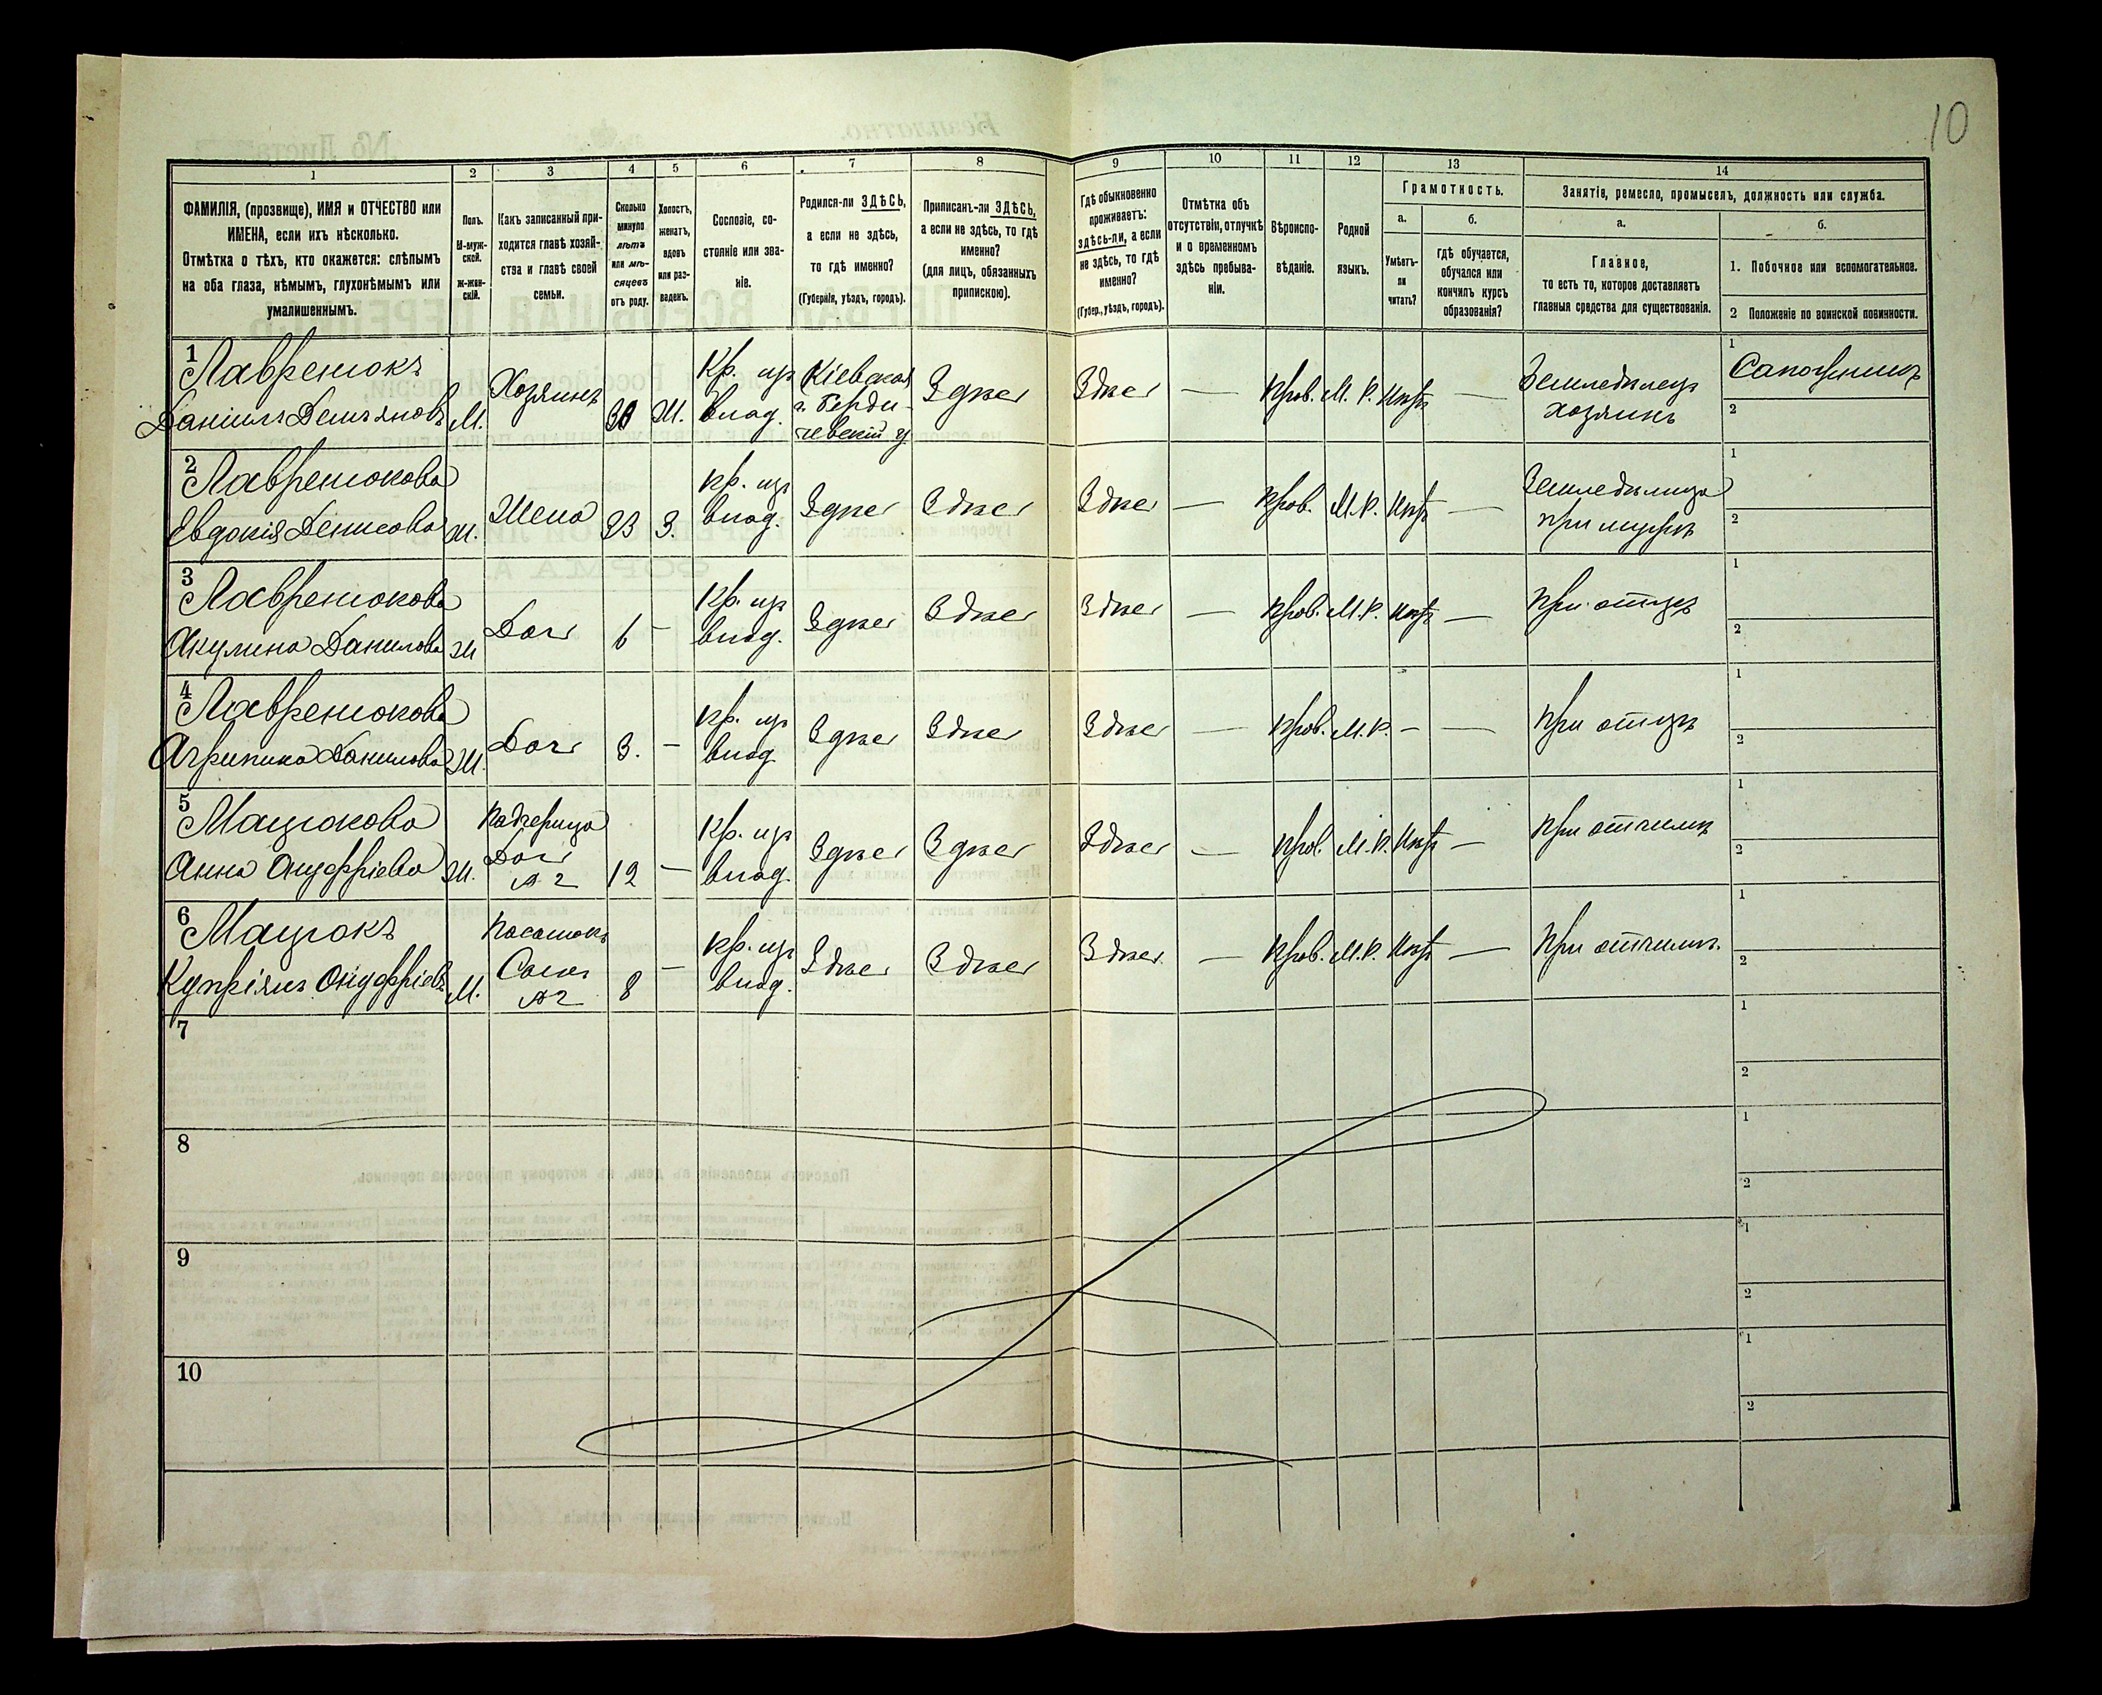 10
1 2 3 4 5 6 7 8 9 10 11 12 13 14
ФАМИЛІЯ, (прозвище), ИМЯ и ОТЧЕСТВО или
ИМЕНА, если ихъ нѣсколько.
Отмѣтка о тѣхъ, кто окажется: слѣпымъ
на оба глаза, нѣмымъ, глухонѣмымъ или
умалишеннымъ.
Полъ.
М-муж-
ской.
Ж-жен-
скій.
Какъ записанный при-
ходится главѣ хозяй-
ства и главѣ своей
семьи.
Сколько
минуло
лѣтъ
или мѣ-
сяцевъ
отъ роду.
Холостъ,
женатъ,
вдовъ
или раз-
веденъ.
Сословіе, со-
стояніе или зва-
ніе.
Родился-ли ЗДѢСЬ,
а если не здѣсь,
то гдѣ именно?
(Губернія, уѣздъ, городъ).
Приписанъ-ли ЗДѢСЬ,
а если не здѣсь, то гдѣ
именно?
(для лицъ, обязанныхъ
припискою).
Гдѣ обыкновенно
проживаетъ:
здѣсь-ли, а если
не здѣсь, то гдѣ
именно?
(Губер., уѣздъ, городъ).
Отмѣтка объ
отсутствіи, отлучкѣ
и о временномъ
здѣсь пребыва-
ніи.
Вѣроиспо-
вѣданіе.
Родной
языкъ.
Грамотность.
а.
Умѣетъ-
ли
читать?
б.
Гдѣ обучается,
обучался или
кончилъ курсъ
образованія?
Занятія, ремесло, промыселъ, должность или служба.
а.
Главное,
то есть то, которое доставляетъ
главныя средства для существованія.
б.
1. Побочное или вспомогательное.
2 Положеніе по воинской повинности.
1
Лавренюкъ
Даніилъ Демьяновъ
М.
Хозяинъ
Ж.
Кр. изъ
влад.
Кіевская
г. Берди-
чевскій у.
Здѣсь
Здѣсь
—
Прав.
М. Р.
Нѣтъ
—
Земледѣлецъ
хозяинъ
1
Сапожникъ
2
2
Лавренюкова
Евдокія Денисова
Ж.
Жена
33
З.
Кр. изъ
влад.
Здѣсь
Здѣсь
Здѣсь
—
Прав.
М.Р.
Нѣтъ
—
Земледѣлица
при мужѣ
1
2
3
Лавренюкова
Акулина Данилова
Ж
Дочь
6
—
Кр. изъ
влад.
Здѣсь
Здѣсь
Здѣсь
—
Прав.
М.Р.
Нѣтъ
—
При отцѣ
1
2
4
Лавренюкова
Агрипина Данилова
Ж.
Дочь
3.
—
Кр. изъ
влад
Здѣсь
Здѣсь
Здѣсь
—
Прав.
М.Р.
—
—
При отцѣ
1
2
5
Мацюкова
Анна Онуфріева
Ж.
Падчерица
Дочь
№ 2
12
—
Кр. изъ
влад.
Здѣсь
Здѣсь
Здѣсь
—
Прав.
М.Р.
Нѣтъ
—
При отчимѣ
1
2
6
Мацюкъ
Купріянъ Онуфріевъ
М.
Пасынокъ
Сынъ
№ 2
8
—
Кр. изъ
влад.
Здѣсь
Здѣсь
Здѣсь
—
Прав.
М.Р.
Нѣтъ
—
При отчимѣ
1
2
7
1
2
8
1
2
9
1
2
10
1
2